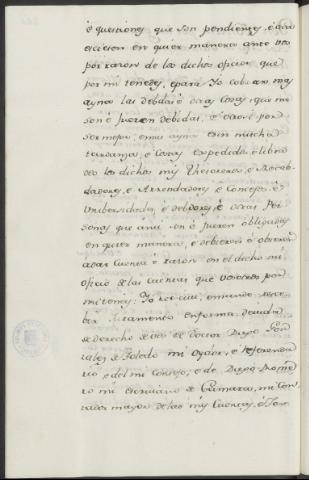 é questiones que son pendientes, é aca
escieren en quier manera ante vos
por razon de los dichos oficios que
por mi tenedes, é para Yo cobrar mas
ayna las debdas é otras cosas que me
son é fueren debidas, é se me
mas ayna é sin mucha
tardanza, é Costas expedida é libra
dos los dichos mis Thesoreros, é Recab-
dadores, é Arrendadores é Concejos, é
Unibersidades, é debdores, é otras Per
sonas que ami son é fueren obligados
en quier manera, é debieren é obieren
adar Cuenta é razon en el dicho mi
oficio de las Cuentas que vosotros por
mi tenes: Yo vos mando rece
bir Juramento en forma devida
de derecho de vos el Doctor Diego Gon
zalez de Toledo mi Oydor, é Referenda
rio é del mi Consejo; é de Diego Rome
ro mi escrivano de Camara, mi Con
tador mayor de las mis Cuentas, é